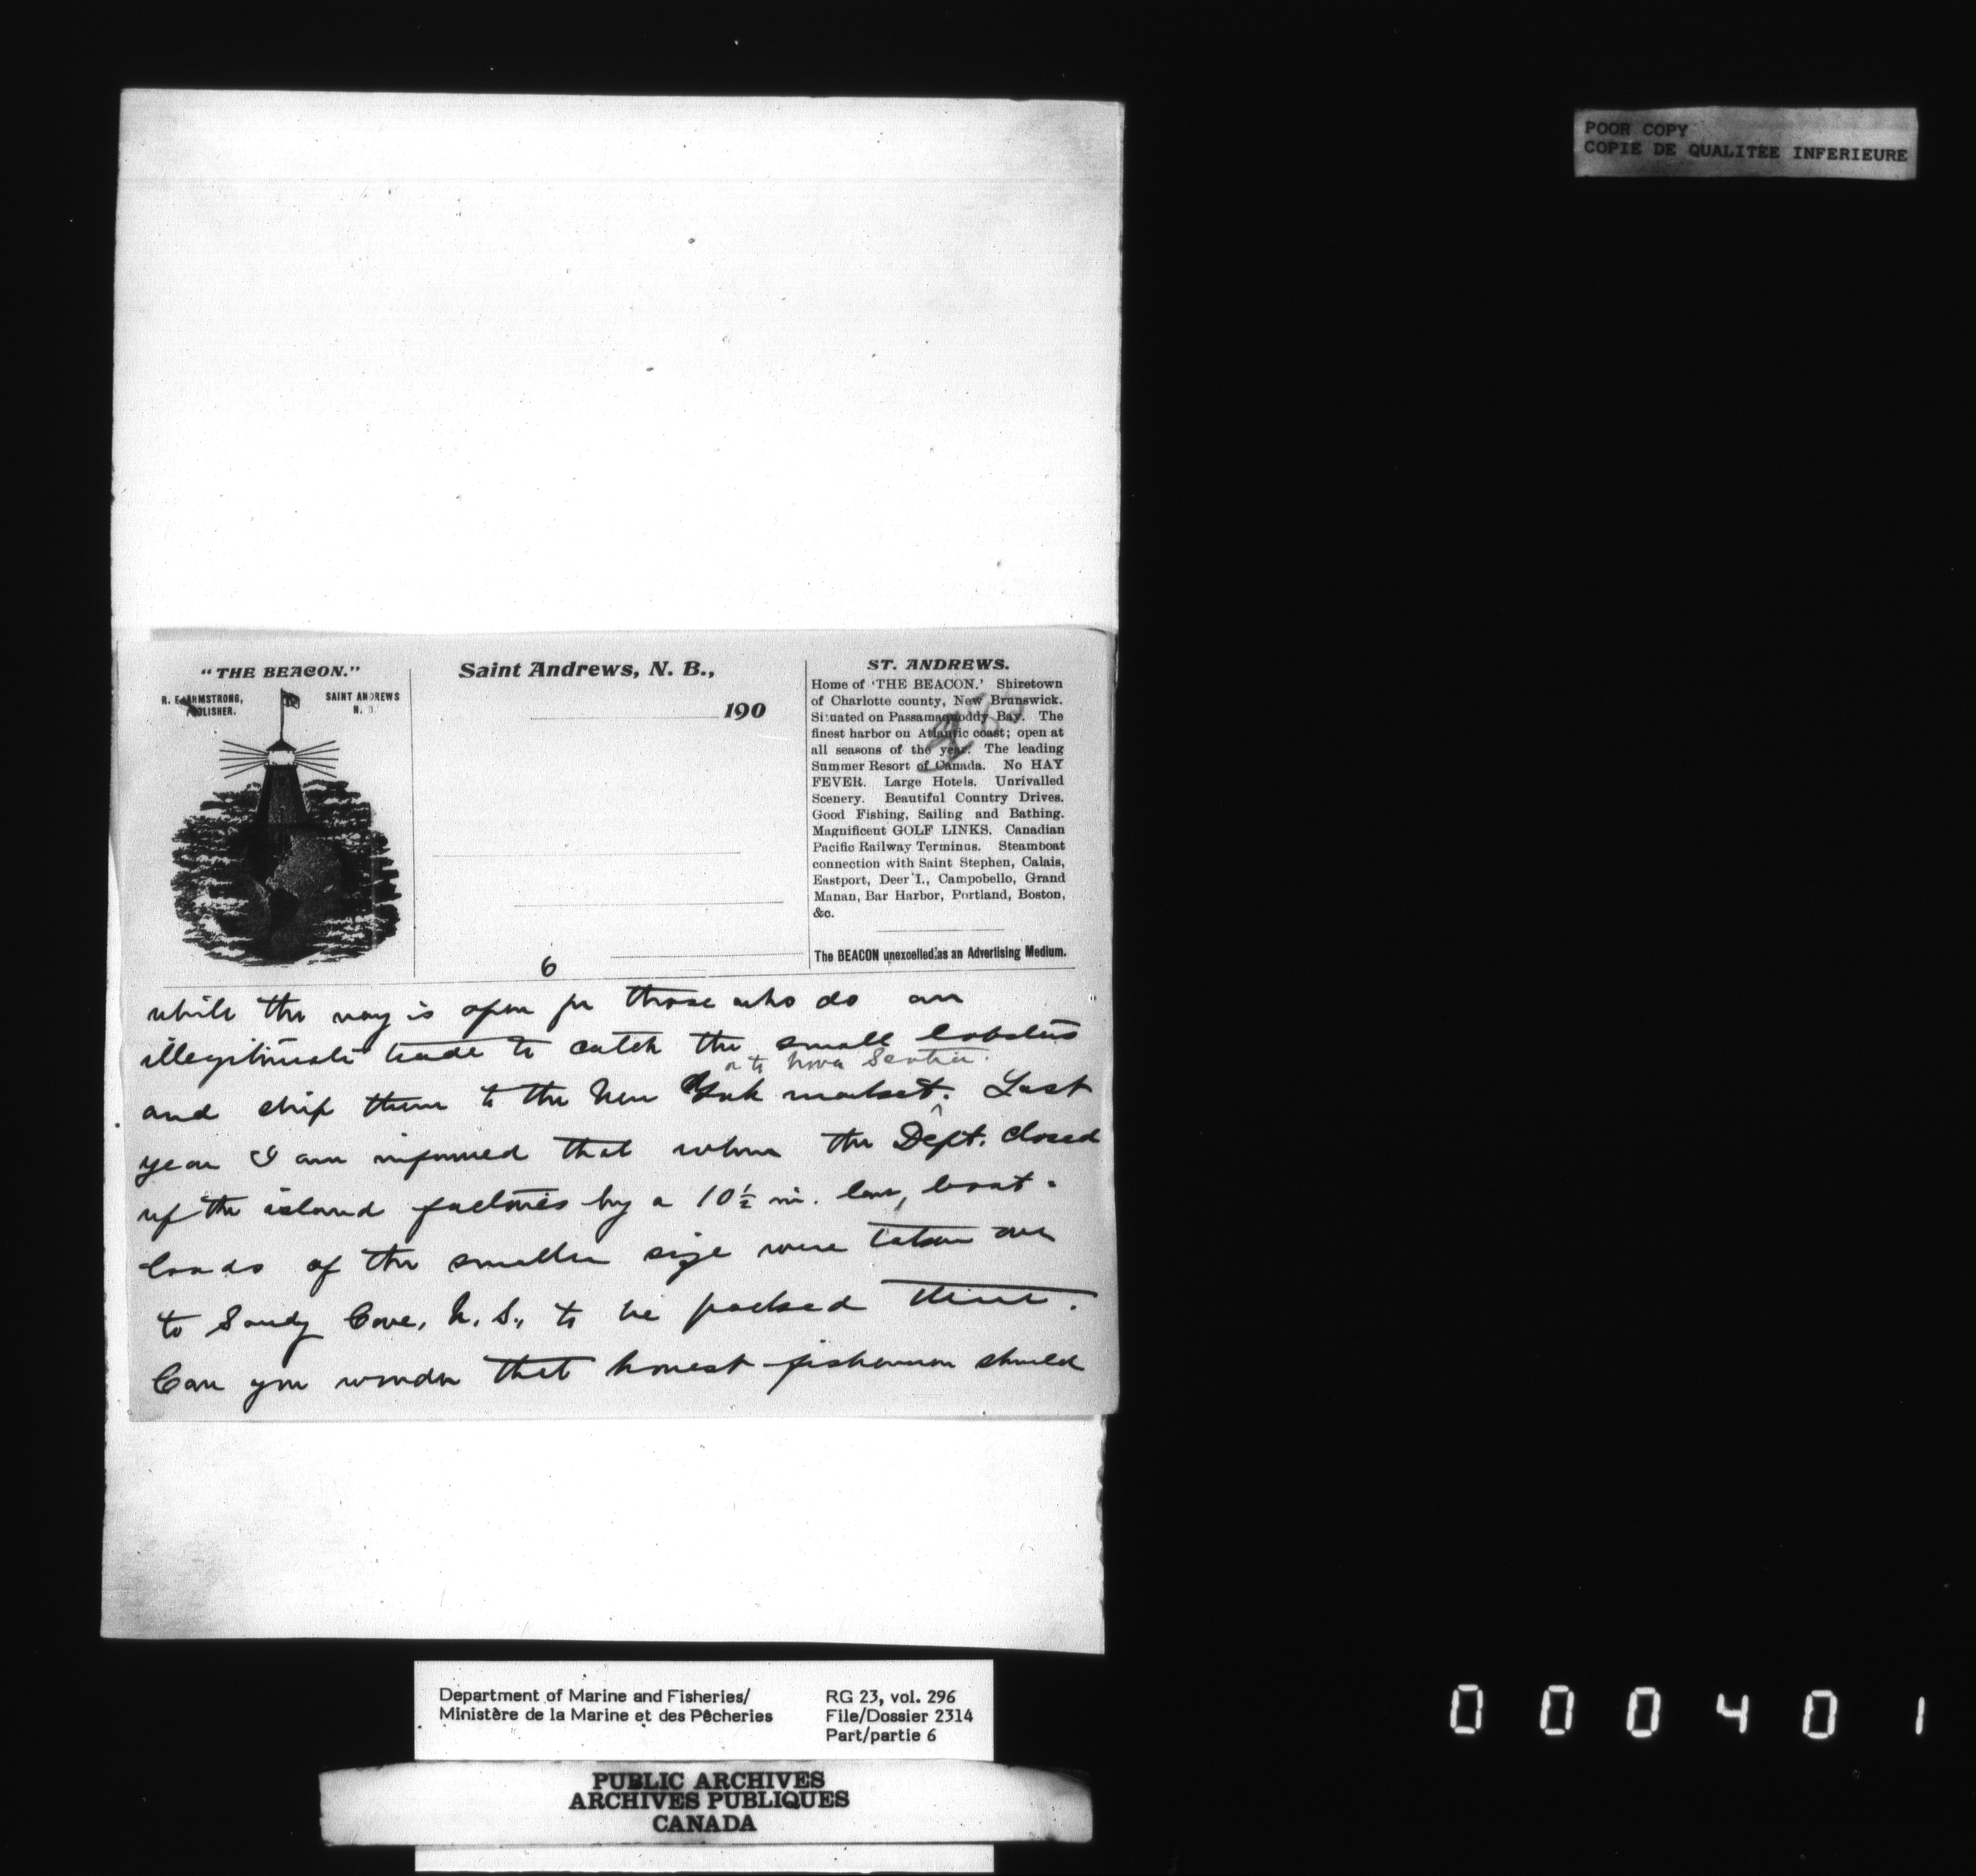 POOR COPY
COPIE DE QUALITEE INFERIEURE
"THE BEACON."
R. E. ARMSTRONG,
PUBLISHER.
SAINT ANDREWS
N. B.
Saint Andrews, N. B.,
190
ST. ANDREWS.
Home of 'THE BEACON.' Shiretown
of Charlotte county, New Brunswick.
Situated on Passamaquoddy Bay. The
finest harbor on Atlantic coast; open at
all seasons of the year. The leading
Summer Resort of Canada. No HAY
FEVER. Large Hotels. Unrivalled
Scenery. Beautiful Country Drives.
Good Fishing, Sailing and Bathing.
Magnificent GOLF LINKS. Canadian
Pacific Railway Terminus. Steamboat
connection with Saint Stephen, Calais,
Eastport, Deer I., Campobello, Grand
Manan, Bar Harbor, Portland, Boston,
&c.
The BEACON unexcelled as an Advertising Medium.
6
while the way is open for those who do an
illegitimate trade to catch the small lobsters
or to Nova Scotia.
and ship them to the New York market. Last
year I am informed that when the Dept. closed
up the island factories by a 10½ in. law, boat-
loads of the smaller size were taken over
to Sandy Cove, N. S., to be packed there.
Can you wonder that honest fishermen should
Department of Marine and Fisheries/
Ministère de la Marine et des Pêcheries
RG 23, vol. 296
File/Dossier 2314
Part/partie 6
PUBLIC ARCHIVES
ARCHIVES PUBLIQUES
CANADA
000401